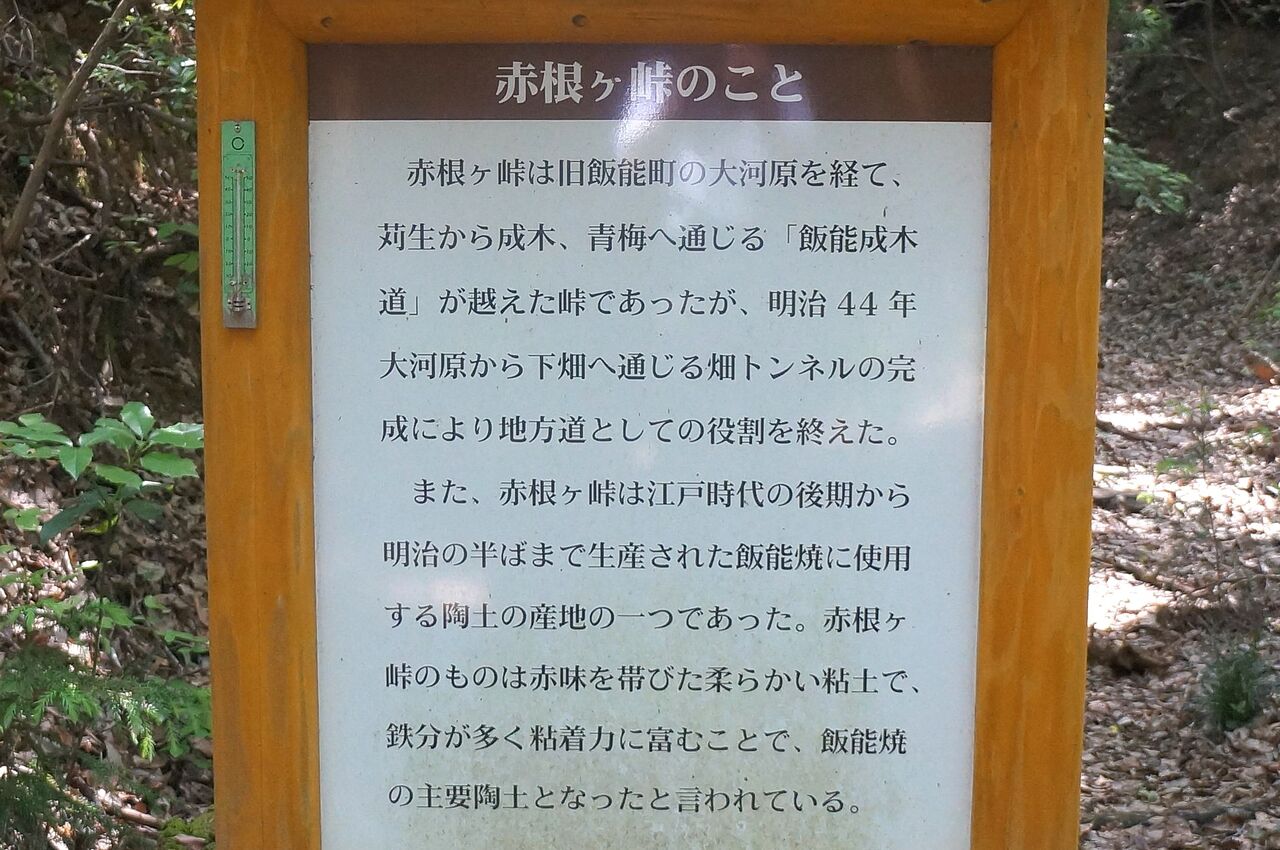 赤根ヶ峠のこと
赤根ヶ峠は旧飯能町の大河原を経て、
苅生から成木、青梅へ通じる「飯能成木
道」が越えた峠であったが、明治 44 年
大河原から下畑へ通じる畑トンネルの完
成により地方道としての役割を終えた。
また、赤根ヶ峠は江戸時代の後期から
明治の半ばまで生産された飯能焼に使用
する陶土の産地の一つであった。赤根ヶ
峠のものは赤味を帯びた柔らかい粘土で、
鉄分が多く粘着力に富むことで、飯能焼
の主要陶土となったと言われている。